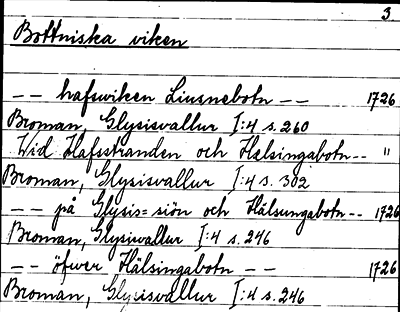 3
Bottniska viken
-- hafswiken Liusnebotn -- 1726
Broman, Glysisvallur I:4 s. 260
Wid Hafsstranden och Hälsingabotn-- "
Broman, Glysisvallur I:4 s. 302
-- på Glysis=siön och Hälsungabotn-- 1726
Broman, Glysisvallur I:4 s. 246
-- öfwer Hälsingabotn -- 1726
Broman, Glysisvallur I:4 s. 246